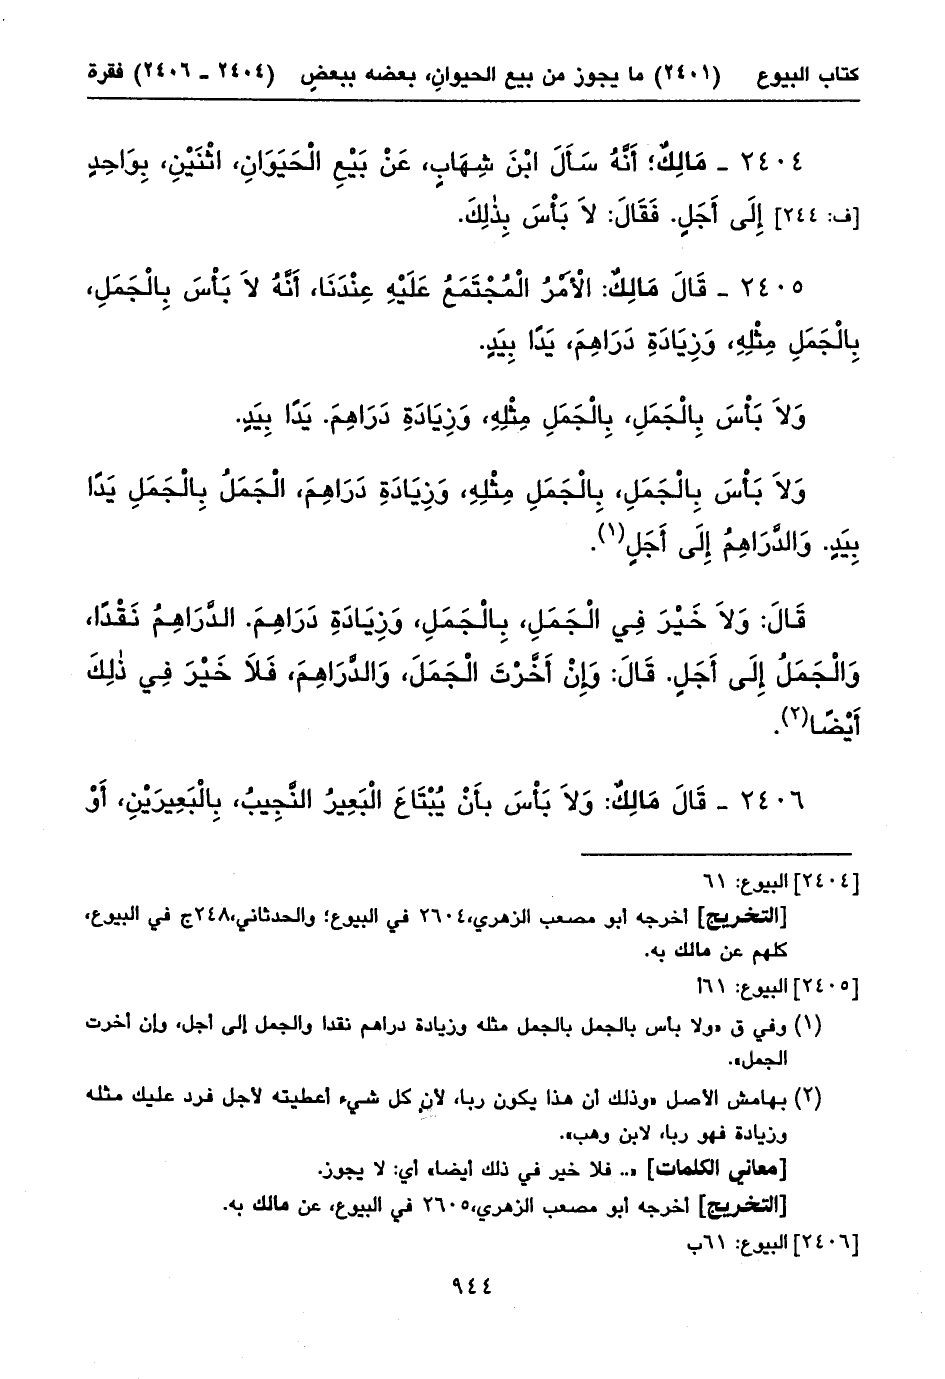 كتاب البيوع (٢٤٠١) ما يجوز من بيع الحيوانِ، بعضه ببعضٍ (٢٤٠٤ ـ ٢٤٠٦) فقرة
٢٤٠٤ ـ مَالِكٌ؛ أَنَّهُ سَأَلَ ابْنَ شِهَابٍ، عَنْ بَيْعِ الْحَيَوَانِ، اثْنَيْنِ، بِوَاحِدٍ
[ف: ٢٤٤] إِلَى أَجَلٍ. فَقَالَ: لاَ بَأْسَ بِذٰلِكَ.
٢٤٠٥ ـ قَالَ مَالِكٌ: الْأَمْرُ الْمُجْتَمَعُ عَلَيْهِ عِنْدَنَا، أَنَّهُ لاَ بَأْسَ بِالْجَمَلِ،
بِالْجَمَلِ مِثْلِهِ، وَزِيَادَةِ دَرَاهِمَ، يَدًا بِيَدٍ.
وَلاَ بَأْسَ بِالْجَمَلِ، بِالْجَمَلِ مِثْلِهِ، وَزِيَادَةِ دَرَاهِمَ. يَدًا بِيَدٍ.
وَلاَ بَأْسَ بِالْجَمَلِ، بِالْجَمَلِ مِثْلِهِ، وَزِيَادَةِ دَرَاهِمَ، الْجَمَلُ بِالْجَمَلِ يَدًا
بِيَدٍ. وَالدَّرَاهِمُ إِلَى أَجَلٍ(١).
قَالَ: وَلاَ خَيْرَ فِي الْجَمَلِ، بِالْجَمَلِ، وَزِيَادَةِ دَرَاهِمَ. الدَّرَاهِمُ نَقْدًا،
وَالْجَمَلُ إِلَى أَجَلٍ. قَالَ: وَإِنْ أَخَّرْتَ الْجَمَلَ، وَالدَّرَاهِمَ، فَلاَ خَيْرَ فِي ذٰلِكَ
أَيْضًا(٢).
٢٤٠٦ ـ قَالَ مَالِكٌ: وَلاَ بَأْسَ بِأَنْ يُبْتَاعَ الْبَعِيرُ النَّجِيبُ، بِالْبَعِيرَيْنِ، أَوْ
[٢٤٠٤] البيوع: ٦١
[التخريج] أخرجه أبو مصعب الزهري،٢٦٠٤ في البيوع؛ والحدثاني،٢٤٨ج في البيوع،
كلهم عن مالك به.
[٢٤٠٥] البيوع: ٦١أ
(١) وفي ق «ولا بأس بالجمل بالجمل مثله وزيادة دراهم نقدا والجمل إلى أجل، وإن أخرت
الجمل».
(٢) بهامش الأصل «وذلك أن هذا يكون ربا، لأن كل شيء أعطيته لأجل فرد عليك مثله
وزيادة فهو ربا، لابن وهب».
[معاني الكلمات] «.. فلا خير في ذلك أيضا» أي: لا يجوز.
[التخريج] أخرجه أبو مصعب الزهري،٢٦٠٥ في البيوع، عن مالك به.
[٢٤٠٦] البيوع: ٦١ب
٩٤٤